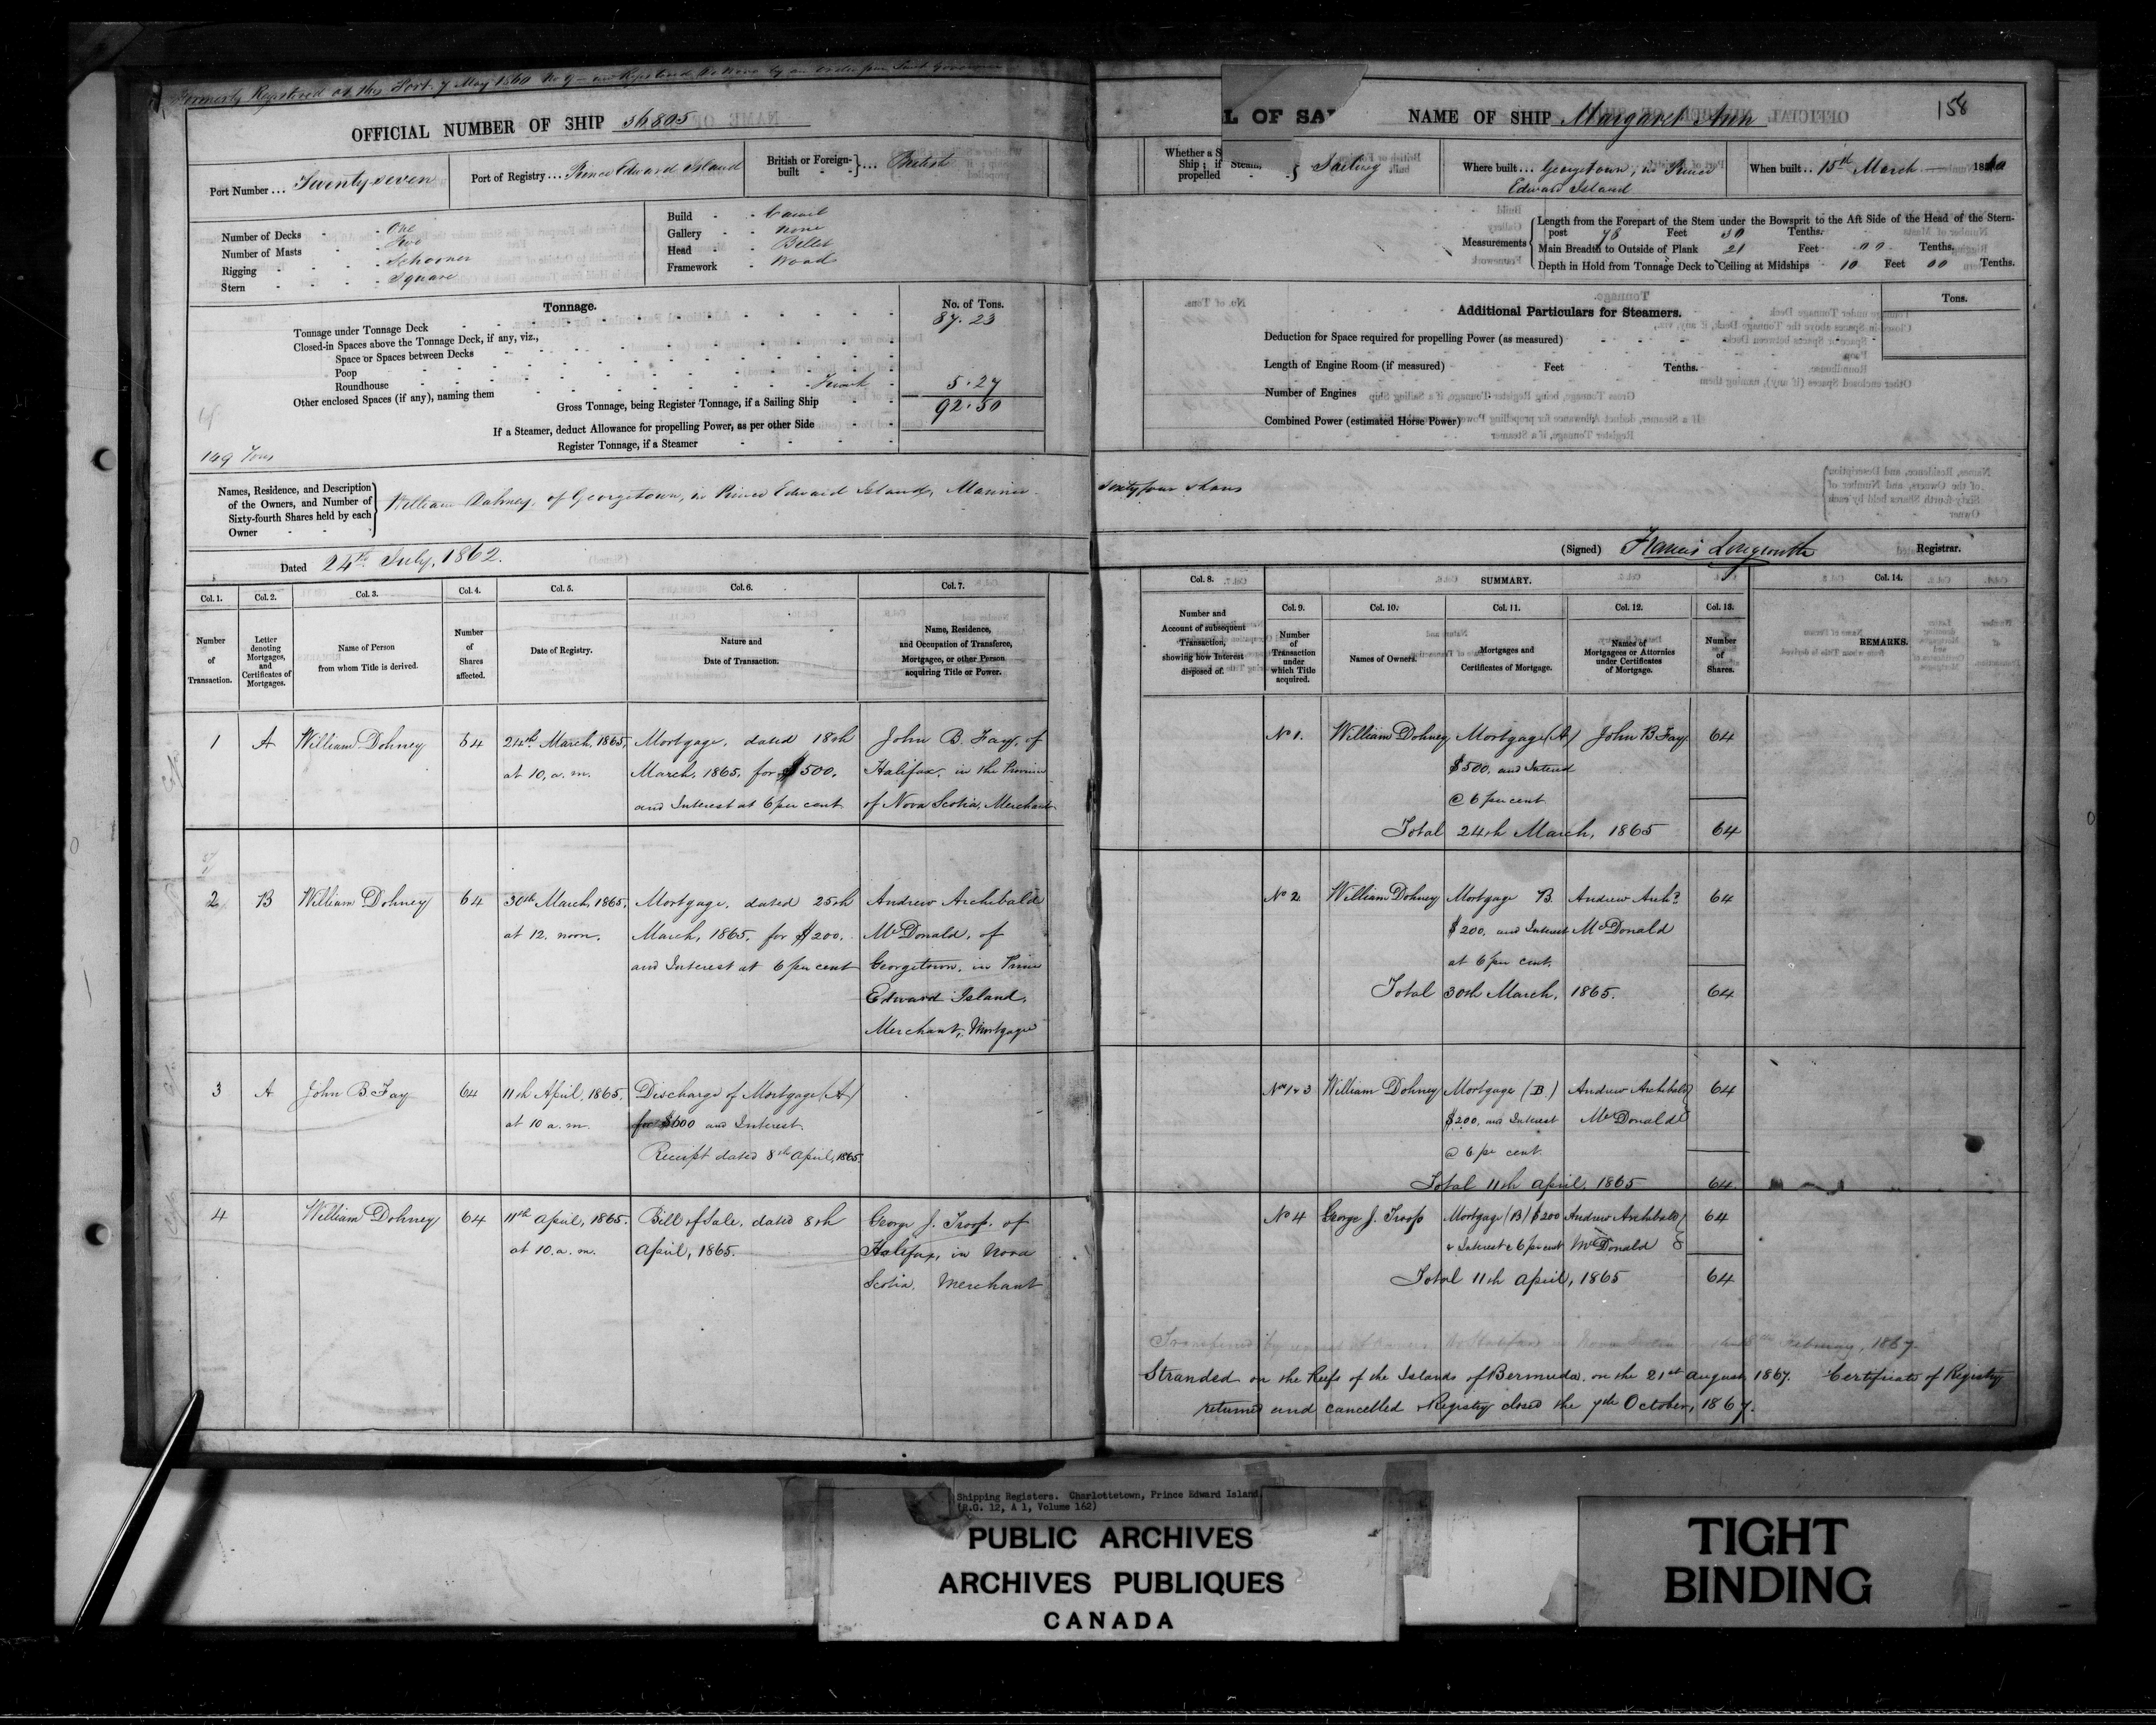 Formerly Registered at this Port 7 May 1860 No 9 — now Registered De Novo by an order from Lieut Governor
OFFICIAL NUMBER OF SHIP 36805
Port Number ... Twenty seven
Port of Registry ... Prince Edward Island
British or Foreign-built ... British
Number of Decks - One
Number of Masts - Two
Rigging - Schooner
Stern - Square
Build - Carvel
Gallery - none
Head - Billet
Framework - Wood
Tonnage.
No. of Tons.
Tonnage under Tonnage Deck 87.23
Closed-in Spaces above the Tonnage Deck, if any, viz.,
Space or Spaces between Decks
Poop
Roundhouse
Other enclosed Spaces (if any), naming them 5.27
Gross Tonnage, being Register Tonnage, if a Sailing Ship 92.50
If a Steamer, deduct Allowance for propelling Power, as per other Side
Register Tonnage, if a Steamer
149 Tons
Names, Residence, and Description of the Owners, and Number of Sixty-fourth Shares held by each Owner
William Dohney, of Georgetown, in Prince Edward Island, Mariner
Dated 24th July, 1862.
Col. 1. Col. 2. Col. 3. Col. 4. Col. 5. Col. 6. Col. 7.
Number of Transaction.
Letter denoting Mortgages, and Certificates of Mortgages.
Name of Person from whom Title is derived.
Number of Shares affected.
Date of Registry.
Nature and Date of Transaction.
Name, Residence, and Occupation of Transferee, Mortgagee, or other Person acquiring Title or Power.
1 A William Dohney 64 24th March, 1865, Mortgage, dated 18th John B. Fay, of
at 10. a.m. March, 1865, for $500. Halifax, in the Province
and Interest at 6 per cent of Nova Scotia, Merchant
2 B William Dohney 64 30th March, 1865, Mortgage, dated 25th Andrew Archibald
at 12. noon. March, 1865, for $200. McDonald, of
and Interest at 6 per cent Georgetown, in Prince
Edward Island,
Merchant, Mortgagee
3 A John B Fay 64 11th April, 1865. Discharge of Mortgage (A)
at 10 a.m. for $600 and Interest.
Receipt dated 8th April, 1865.
4 William Dohney 64 11th April, 1865. Bill of Sale, dated 8th George J. Troop, of
at 10. a.m. April, 1865. Halifax, in Nova
Scotia. Merchant
L OF SA
NAME OF SHIP Margaret Ann
158
Whether a S
Ship; if Steam,
propelled
Sailing
Where built ... Georgetown, in Prince
Edward Island
When built .. 15th March 1860
Measurements
Length from the Forepart of the Stem under the Bowsprit to the Aft Side of the Head of the Stern-
post 78 Feet 30 Tenths.
Main Breadth to Outside of Plank 21 Feet 00 Tenths.
Depth in Hold from Tonnage Deck to Ceiling at Midships 10 Feet 00 Tenths.
Additional Particulars for Steamers.
Tons.
Deduction for Space required for propelling Power (as measured)
Length of Engine Room (if measured) Feet Tenths.
Number of Engines
Combined Power (estimated Horse Power)
Sixty four shares
(Signed) Francis Longworth Registrar.
Col. 8. SUMMARY. Col. 14.
Col. 9. Col. 10. Col. 11. Col. 12. Col. 13.
Number and Account of subsequent Transaction, showing how Interest disposed of.
Number of Transaction under which Title acquired.
Names of Owners.
Mortgages and Certificates of Mortgage.
Names of Mortgagees or Attornies under Certificates of Mortgage.
Number of Shares.
REMARKS.
No 1. William Dohney Mortgage (A) John B Fay 64
$500. and Interest
@ 6 per cent
Total 24th March, 1865 64
No 2 William Dohney Mortgage B. Andrew Archd 64
$200. and Interest McDonald
at 6 per cent.
Total 30th March, 1865. 64
Nos 1 & 3 William Dohney Mortgage (B.) Andrew Archibald 64
$200. and Interest McDonald
@ 6 per cent.
Total 11th April, 1865 64
No 4 George J. Troop Mortgage (B) $200 Andrew Archibald 64
& Interest @ 6 per cent McDonald
Total 11th April, 1865 64
February, 1867
Stranded on the Reefs of the Islands of Bermuda, on the 21st August, 1867. Certificate of Registry
returned and cancelled Registry closed the 7th October, 1867.
Shipping Registers. Charlottetown, Prince Edward Island
(R.G. 12, A 1, Volume 162)
PUBLIC ARCHIVES
ARCHIVES PUBLIQUES
CANADA
TIGHT
BINDING